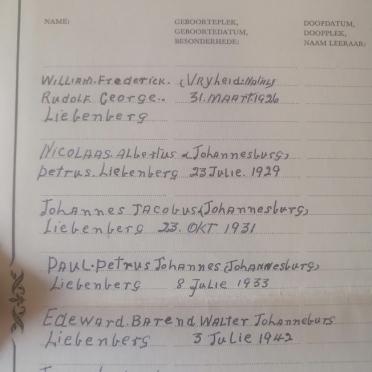 NAME: GEBOORTEPLEK, DOOPDATUM,
GEBOORTEDATUM, DOOPPLEK,
BESONDERHEDE: NAAM LERAAR:
WILLIAM. FREDERICK. (VRYHEID: NATAL)
RUDOLF GEORGE.. 31. MAART. 1926
Liebenberg
NICOLAAS. Albertus (Johannesburg)
petrus. Liebenberg 23 Julie. 1929
Johannes JACobus (Johannesburg)
Liebenberg 23. OKT 1931
PAUL. Petrus Johannes (Johannesburg)
Liebenberg 8 Julie 1933
Edeward. Barend. Walter Johanneburg
Liebenberg 3 Julie 1942